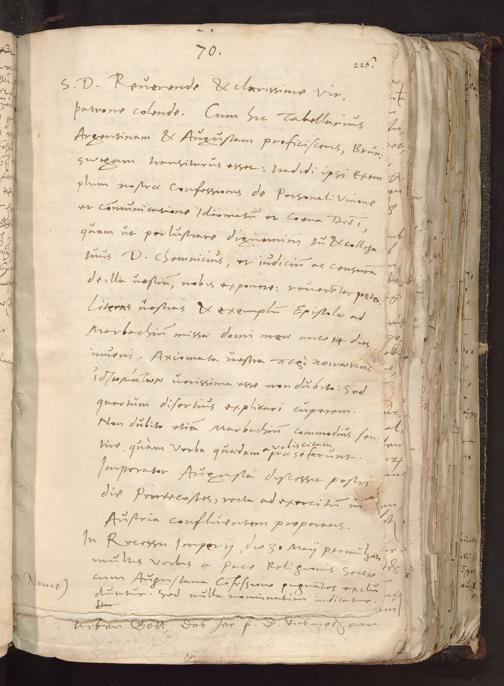 70.
226.
S. D. Reverende & clarissime vir,
patrone colende. Cum hic Tabellarius
Argentinam & Augustam proficiscens, Brun-
suigam transiturus esset: tradidi ipsi Exem
plum nostrae Confessionis de Personali Unione
et communicatione Idiomatum et Coena Dñi,
quam ut perlustrare dignemini tu & collega
tuus D. Chemnicius, et iudicium ac censuram
de illa vestram, nobis exponere: reverenter peto.
Literas vestras & exemplum Epistolae ad
Marbachium missae domi meae ante dies
inveni. Axiomata vestra περὶ κοινωνίας
ἰδιωμάτων verissima esse non dubito: Sed
quartum disertius explicari cuperem.
Non dubito etiam Marbachium commodius sen-
tire, quam verba quaedam prae se ferunt.
Imperator Augusta discessit postri
die Pentecostes, recta ad exercitum in
Austria confluentem properans.
In Recessu Imperij, die 30 Maij promulgato,
multis verbis a Pace Religionis Sectae
cum Augustana Confessione pugnantes exclu
duntur. Sed nulla nominatim indicatur.